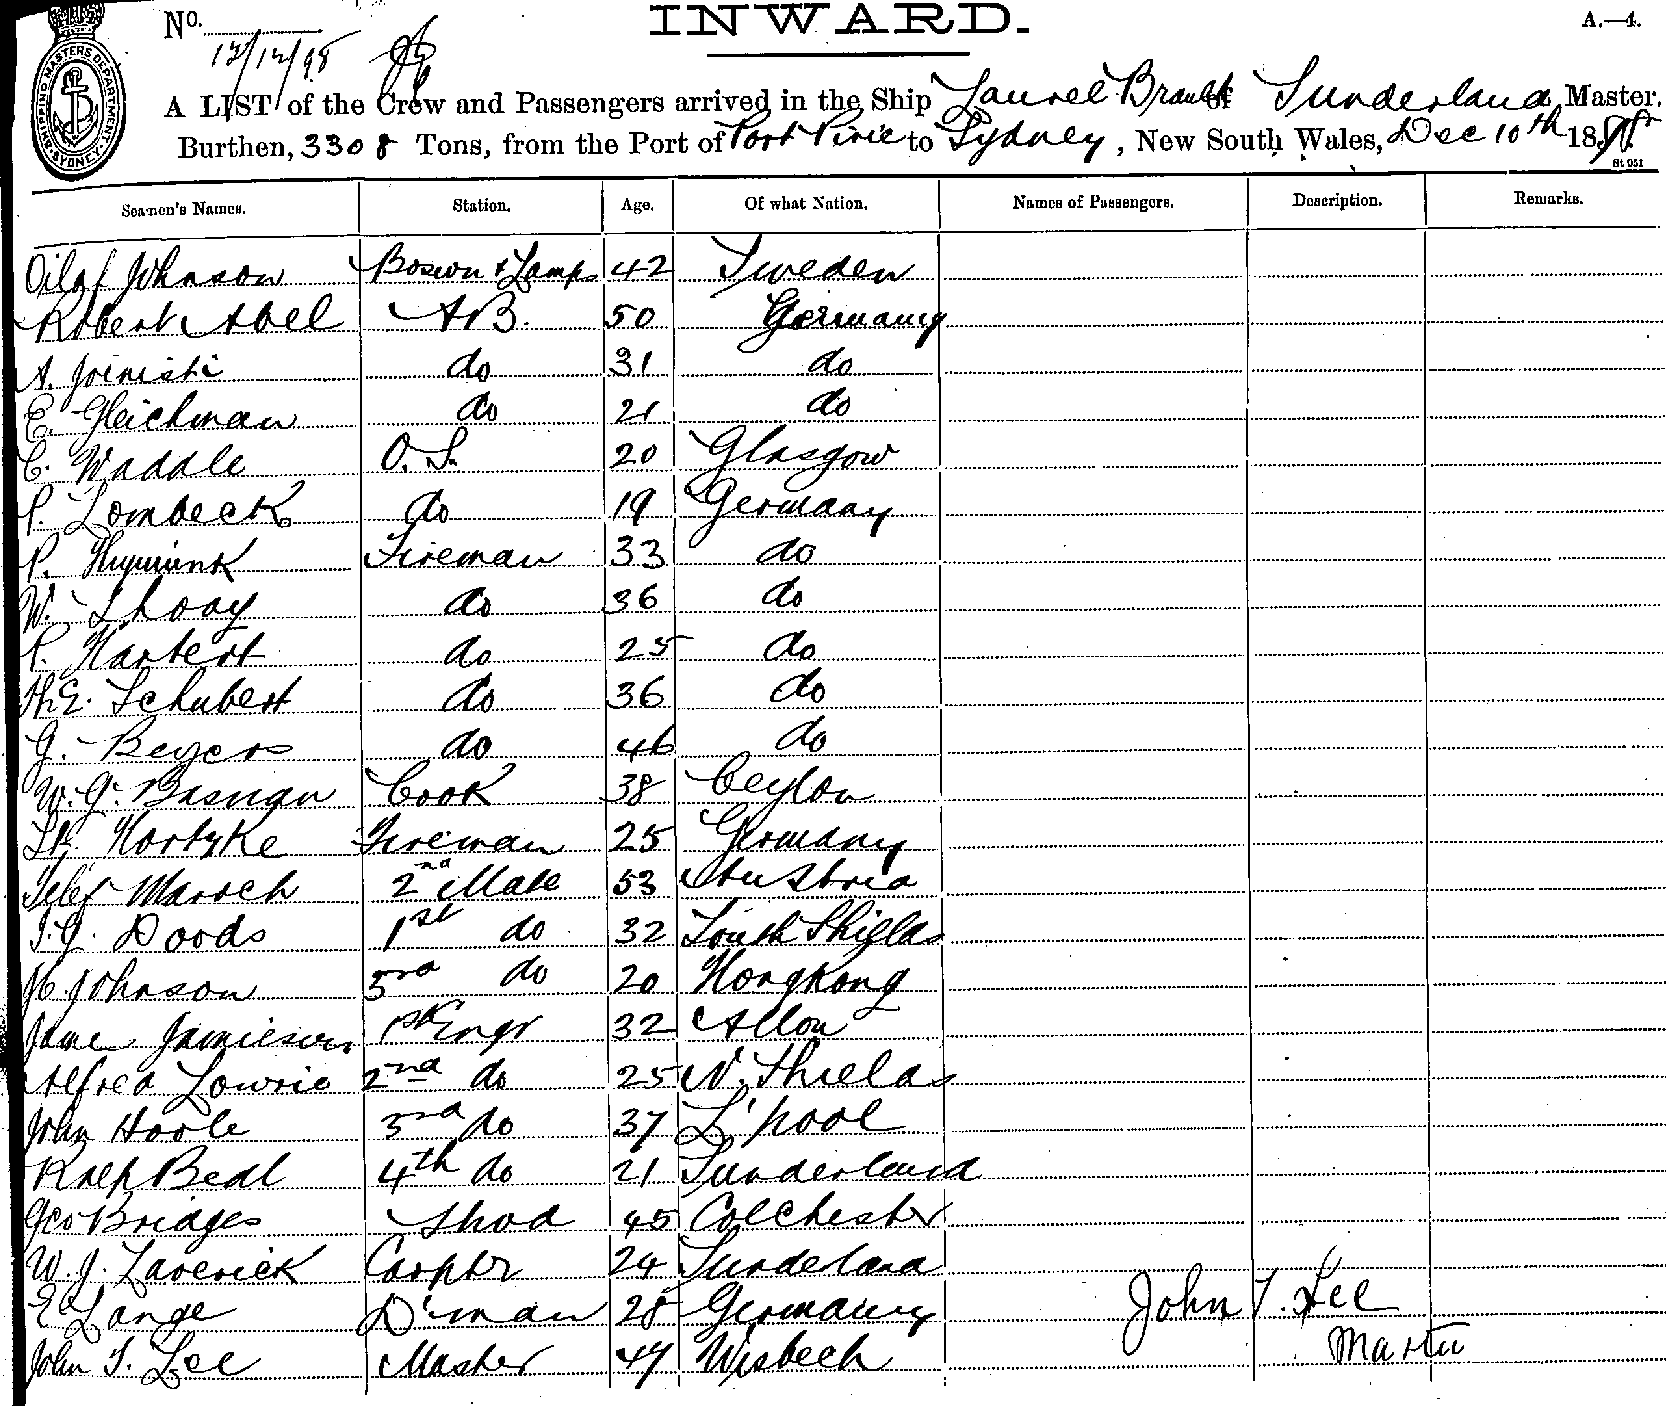 No.
INWARD.
A.—4.
12/12/98
SHIPPING MASTERS DEPARTMENT SYDNEY
A LIST of the Crew and Passengers arrived in the Ship Laurel Branch of Sunderland Master.
Burthen, 3308 Tons, from the Port of Port Pirie to Sydney, New South Wales, Dec 10th 1898
St 951
Seamen's Names. Station. Age. Of what Nation. Names of Passengers. Description. Remarks.
Oilaf Johnson Boswn & Lamps 42 Sweden
Robert Abel A.B. 50 Germany
A. do 31 do
E. Gleichman do 21 do
C. Waddle O.S. 20 Glasgow
P. Lombeck do 19 Germany
P. Fireman 33 do
W. do 36 do
P. Harbert do 25 do
H.E. Schubert do 36 do
G. Beyers do 46 do
W.G. Cook 38 Ceylon
Hortyke Fireman 25 Germany
Maroch 2nd Mate 53 Austria
J.G. Doods 1st do 32 South Shields
H. Johnson 3rd do 20 Hongkong
Jame Jamieson 1st Engr 32 Alloa
Alfred Lowrie 2nd do 25 N. Shields
John Hoole 3rd do 37 L'pool
Ralp Bedl 4th do 21 Sunderland
Geo Bridges Stwd 45 Colchester
W. J. Laverick Carpter 24 Sunderland
E Lange D'man 28 Germany
John T. Lee Master 47 Wisbech
John T. Lee
Master